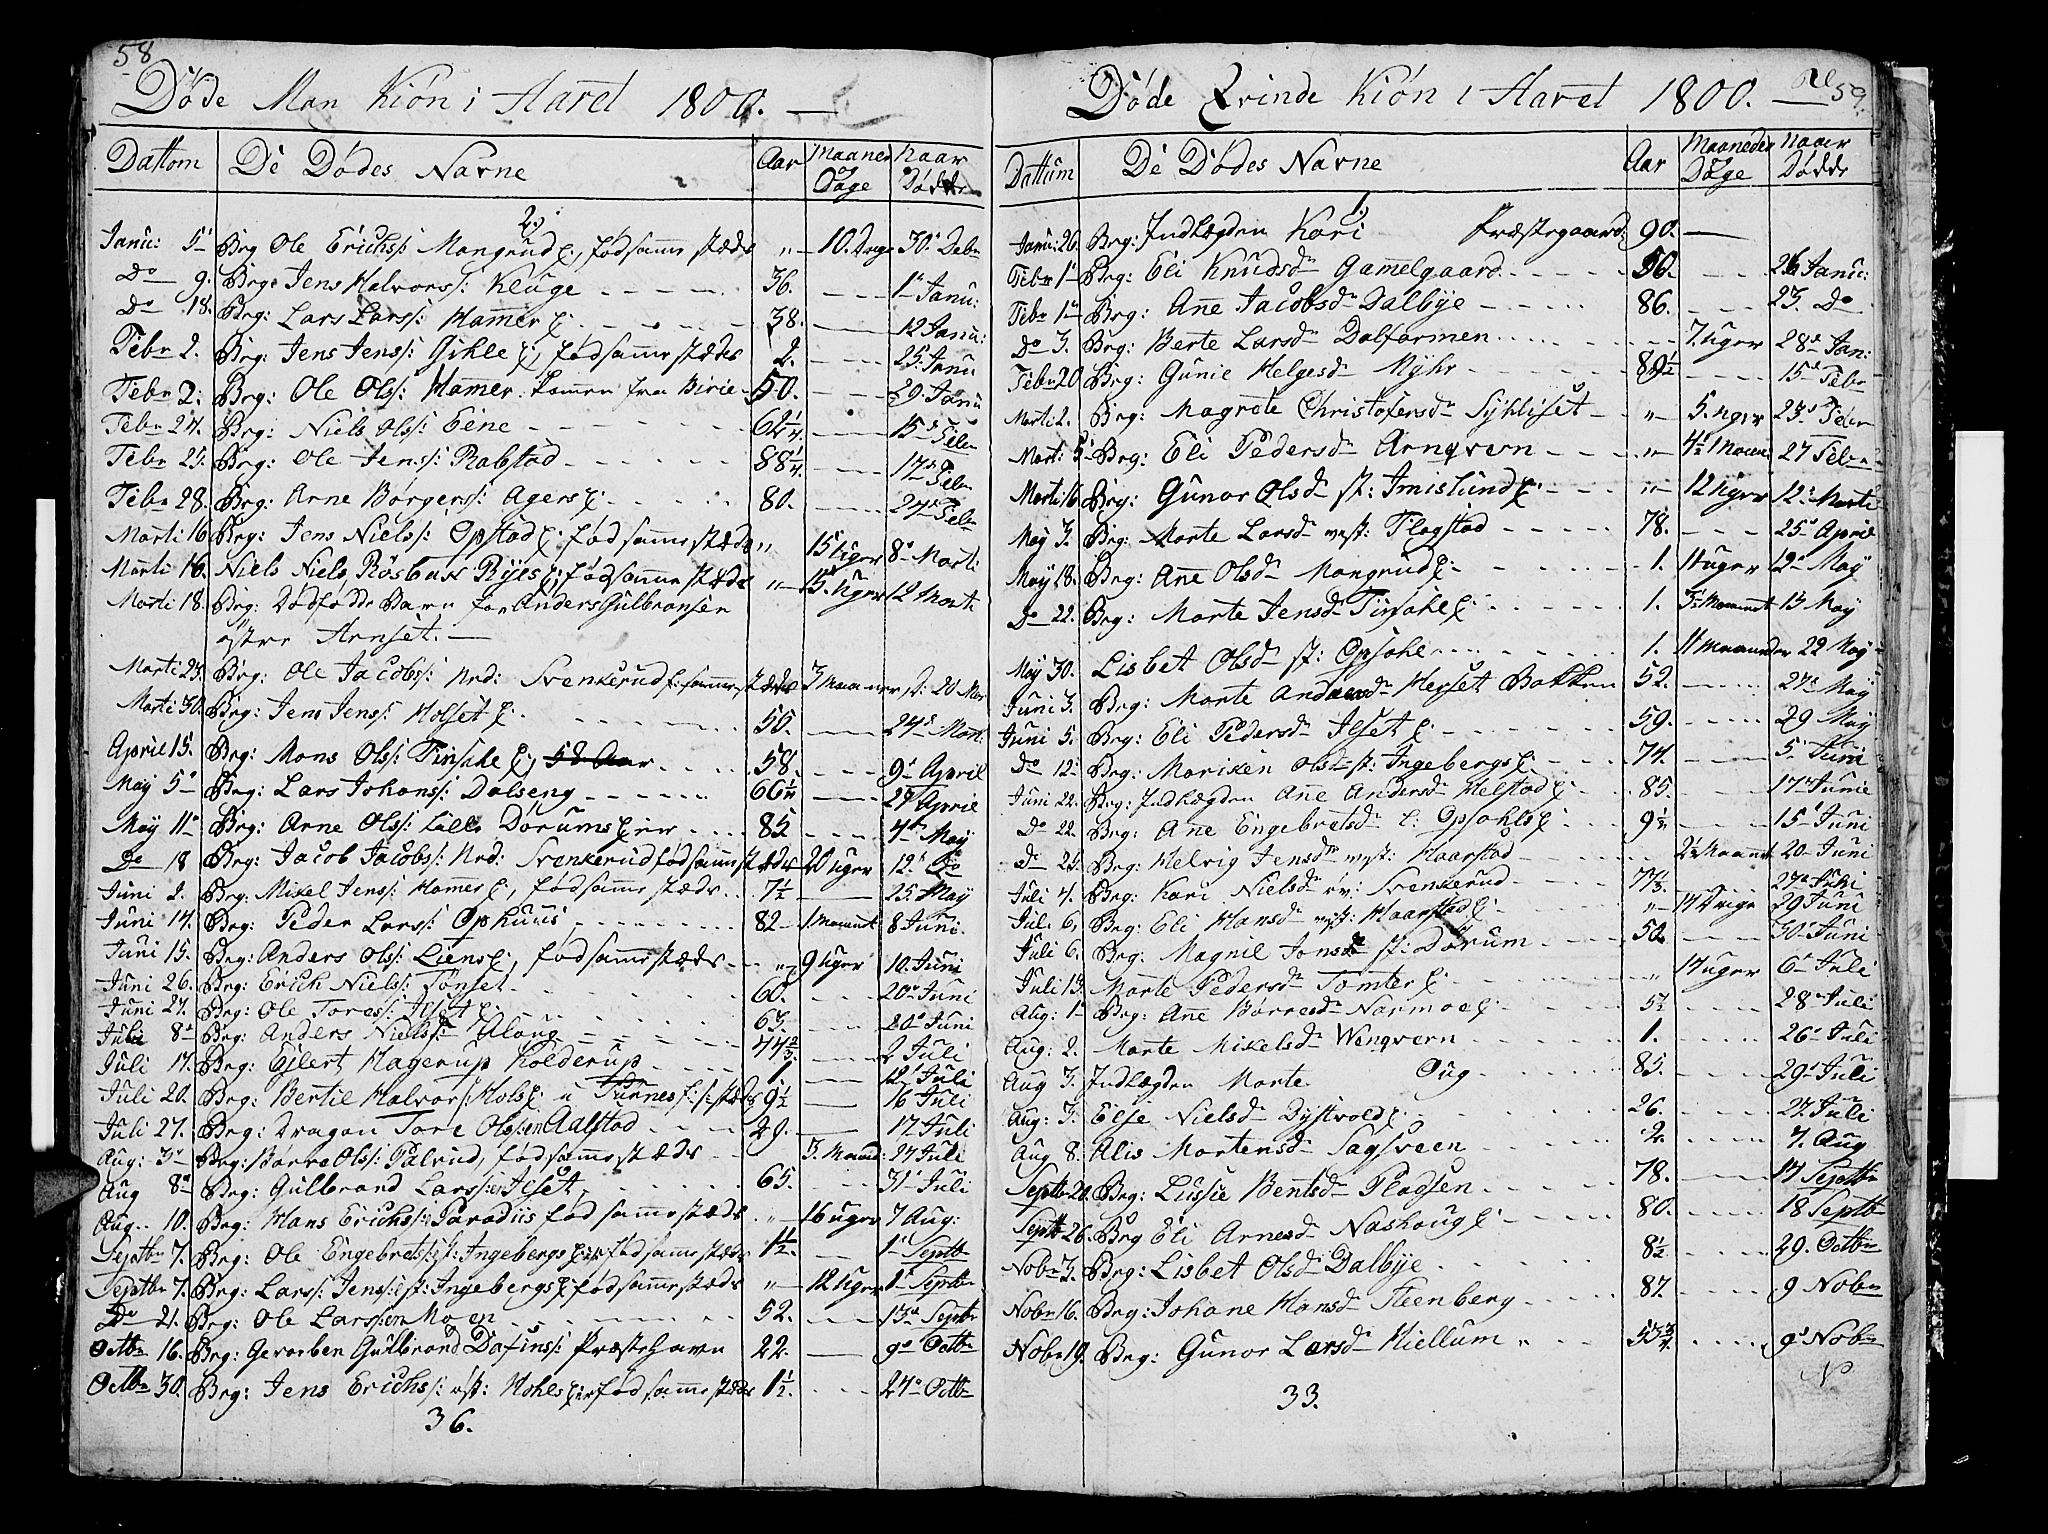 58
Døde Man Kiön i Aaret 1800.
Dattom De Dødes Navne Aar Maaner Dage Naar Dødde
2
Janu: 5 Brg Ole Erichs: Mangrud E:, fød samme stæds „ 10. Dage 30 Debr
Do 9. Brg: Jens Halvors: Kluge 36. 1 Janu:
Do 18. Brg: Lars Lars: Hammer E: 38. 12 Janu:
Febr 2. Brg: Jens Jens: Gihle E, fød samme stæds 2. 25. Janu
Febr 2: Brg: Ole Ols: Hammer kommen fra Birie 50. 29. Janu
Febr 24. Brg: Niels Ols: Eene 62 1/4. 15 Febr
Febr 25. Brg: Ole Jens: Rabstad 88 1/4. 17 Febr
Febr 28. Brg: Arne Børgers: Agers E: 80. 24 Febr
Marti 16 Brg: Jens Niels: Opstad E: fød samme stæds „ 15 Uger 8 Marti
Marti 16. Niels Niels, Røsbak Ryes E; fød samme stæds „ 15 Uger 12 Mart:
Marti 18. Brg: Dødfødde Barn for Anders Gulbransen
østre Arnset.
Marti 23. Brg: Ole Jacobs: Nrd: Svenkerud f: samme stæds 3 Maaner d: 20 Mar
Marti 30. Brg: Jens Jens: Holset E: 55. 24 Mart:
April 15. Brg: Mons Ols: Tinsahe E, 58 Aar 58. 9 April
May 5 Brg: Lars Johans: Dalseng 66 1/4 29 April
May 11 Brg: Arne Ols: Lille Dørums Eier 85 4 May
Do 18 Brg: Jacob Jacobs: Nrd: Svenkerud fød samme stæds 20 Uger 12 Do
Juni 2. Brg: Mikel Jens: Hammer E, fød samme stæds 7 1/2 25. May
Juni 14. Brg: Peder Lars: Ophuus 82 1. Maanet 8 Juni
Juni 15. Brg: Anders Ols: Liens E, fød samme stæds „ 9 Uger 10. Juni
Juni 26. Brg: Erich Niels: Tønset 60. 20 Juni
Juni 27. Brg: Ole Tores: Ilset E: 63. 20 Juni
Juli 8 Brg: Anders Niels: Aloug 44 2/3. 2 Juli
Juli 17. Brg: Ejlert Hagerup Kolderup 1 12 Juli
Juli 20. Brg: Bertil Halvor: Hols E: u Furnes f: s: stæds 9 1/2 16 Juli
Juli 27. Brg: Dragon Tore Olssen Aalstad 29. 17 Juli
Aug: 3 Brg: Børre Ols: Palrud, fød samme stæds 3. Maaned: 27 Juli
Aug 8 Brg: Gulbrand Larssen Ilset 65. 31 Juli
Aug. 10. Brg: Hans Erichs: Paradiis fød samme stæds „ 16 Uger 7 Aug:
Septbr 7. Brg: Ole Engebrets: st: Ingebergs Eier fød samme stæds 1 1/2. 1 Septbr
Septbr 7. Brg: Lars: Jens: st: Ingebergs E fød samme stæds „ 12 Uger 1 Septbr
Do 21. Brg: Ole Larssen Moen 52. 13 Septbr
Octbr 16. Brg: Gevorben Gulbrand Dafins: Præstehavn 22. 9 Octbr
Octbr 30. Brg: Jens Erichs: vst: Hohls Eier fød samme stæds 1 1/2. 24 Octbr
36.
59.
Døde Qvinde Kiön i Aaret 1800.
Dattum De Dødes Navne Aar Maaneder Døge Naar Dødde
1
Janu: 26. Brg: Indlægden Kari Præstegaard: 90.
Febr 1 Brg: Eli Knudsdr Gammelgaard 50. 26 Janu:
Febr 1 Brg: Ane Jacobsdr Dalbye 86. 23. Do
Do 3. Brg: Berte Larsd Dalfarmen 7. Uger 28 Jan:
Febr 20 Brg: Gunie Helgesd Myhr 89 1/2 15 Febr
Marti 2. Brg: Magrete Christofersdr Sykliset „ 5. Uger 23 Febr
Mart: 5 Brg: Eli Pedersdr Arnqvern „ 4 1/2 Maan: 27 Febr
Marti 16 Brg: Gunor Olsdr st: Imislund E: „ 12 Uger 12 Marti
May 3. Brg: Marte Larsd vest: Flagstad 78. 25 April
May 18. Brg: Ane Olsdr Mangrud E: 1. 11 Uger 12 May
Do 22. Brg: Marte Jensdr Tinsahe E: 1. 5 Maanet 13 May
May 30. Lisbet Olsdr st: Opsahl 1. 11 Maaneder 22 May
Juni 3. Brg: Marte Andersdr Herset Bakken 52. 27 May
Juni 5. Brg: Eli Pedersdr Ilset E: 59. 29 May
Do 12 Brg: Mariken Olsdr st: Ingebergs E: 74. 5 Juni
Juni 22. Brg: Indlægden Ane Andersdr Helstad E: 85. 17 Junie
Do 22. Brg: Ane Engebretsdr l: Opsahls E: 9 1/2. 15 Juni
Do 24. Brg: Helvig Jensdr vst: Haarstad 2 1/2 Maanet 20 Juni
Juli 4. Brg: Kari Nielsdr øv: Svenkerud 77 1/3. 27 Juli
Juli 6, Brg: Eli Hansdr vst: Haarstad E: „ 14 Dage 29 Juni
Juli 6. Brg: Magnil Jonsdr st: Dørum 50. 30 Juni
Juli 13. Marte Pedersdr Tomter E: „ 17 Uger 6 Juli
Aug: 1 Brg: Ane Børresdr Narmoe E: 5 1/2 28 Juli
Aug: 2. Marte Mikelsdr Wenqvern 1. 26 Juli
Aug 3. Indlægden Marte Oug 85. 29 Juli
Aug: 3. Else Nielsdr Dystvold E: 26. 27. Juli
Aug 8. Alis Mortensdr Sagsveen 2. 7. Aug
Septbr 20. Brg: Lussie Bentsdr Pladsen 78. 17 Septbr
Septbr 26. Brg Eli Arnesdr Nashoug E: 80. 18 Septbr
Nobr 3. Brg: Lisbet Olsdr Dalbye 8 1/2. 29. Octbr
Nobr 16. Brg: Johane Hansdr Steenberg 87. 9 Nobr
Nobr 19. Brg: Gunor Larsdr Hiellum 53 3/4. 9 Nobr
33.